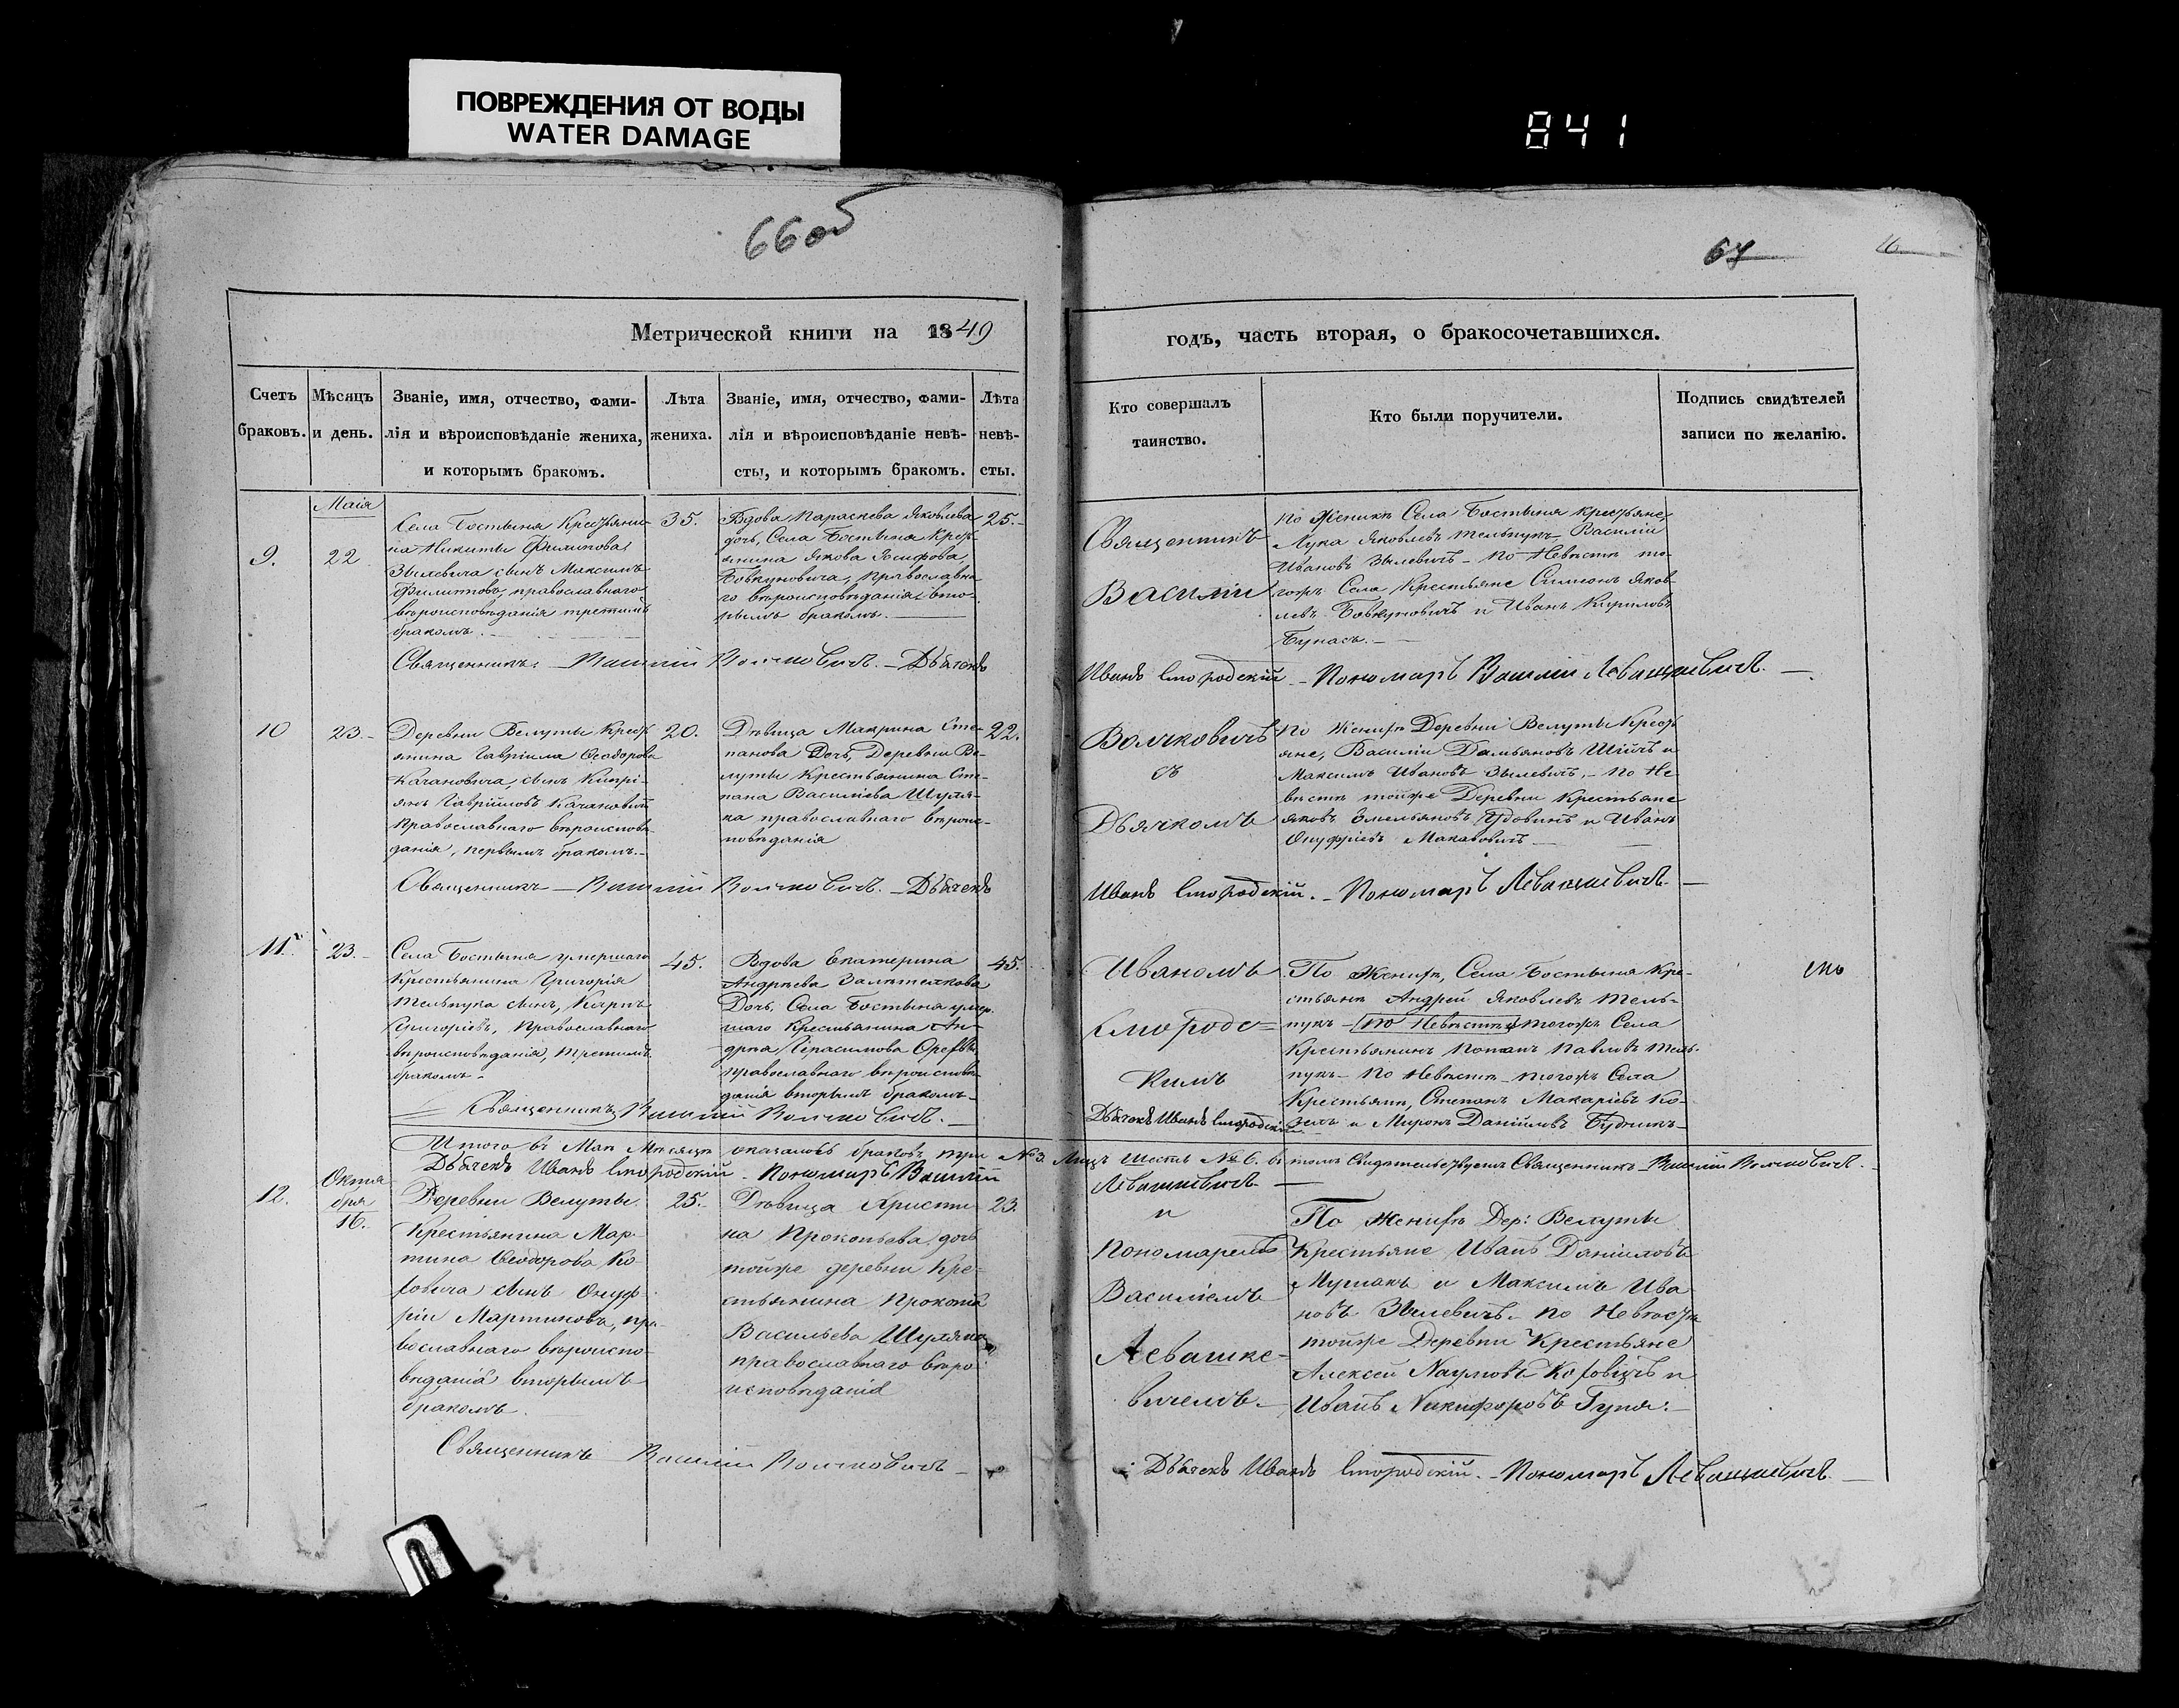 ПОВРЕЖДЕНИЯ ОТ ВОДЫ
WATER DAMAGE
841
66об
67
Метрической книги на 1849
годъ, часть вторая, о бракосочетавшихся.
Счетъ браковъ.
Мѣсяцъ и день.
Званіе, имя, отчество, фами-
лія и вѣроисповѣданіе жениха,
и которымъ бракомъ.
Лѣта
жениха.
Званіе, имя, отчество, фами-
лія и вѣроисповѣданіе невѣ-
сты, и которымъ бракомъ.
Лѣта
невѣ-
сты.
Кто совершалъ
таинство.
Кто были поручители.
Подпись свидѣтелей
записи по желанію.
Маія
9.
22
Села Бостыня Крестьяни-
на Никиты Филипова
Зылевича сынъ Максимъ
православнаго
вѣроисповѣданія третимъ
бракомъ.
35.
Вдова Параскева Яковлева
дочь, Села Бостыня Крест-
янина Якова Іосифова
Бовкуновича, православна-
го вѣроисповѣданія вто-
рымъ бракомъ.
25.
Священникъ
Василій
По Женихѣ Села Бостыня Крестьяне,
Лука Яковлевъ Тельпукъ, Василій
Ивановъ Зылевичъ – По Невѣстѣ то-
гожъ Села Крестьяне Симіонъ Яков-
левъ Бовкуновичъ и Иванъ Кириловъ
Бунасъ.
Священникъ Василій Волчковичъ. – Дьячекъ
Иванъ Смородскій – Пономарь Василій Левашкевичъ.
10
23.
Деревни Велуты Крест-
янина Гавріила Ѳеодорова
Качановича, сынъ Кипрі-
янъ Гавріиловъ Качановичъ
Православнаго вѣроисповѣ-
данія, первымъ бракомъ.
20.
Дѣвица Макрина Сте-
панова Дочь, Деревни Ве-
луты Крестьянина Сте-
пана Василіева Шуля-
ка православнаго вѣроис-
повѣданія
22.
Волчковичъ
съ
Дьячкомъ
По Женихѣ Деревни Велуты Крест-
яне, Василій Дамьяновъ и
Максимъ Ивановъ Зылевичъ, – По Не-
вѣстѣ тойже Деревни Крестьяне
Яковъ Емельяновъ и Иванъ
Онуфріевъ
Священникъ – Василій Волчковичъ. – Дьячекъ
Иванъ Смородскій. – Пономарь Левашкевичъ.
11.
23.
Села Бостыня умершаго
Крестьянина Григорія
Тельпука сынъ, Карпъ
Григоріевъ, Православнаго
вѣроисповѣданія, третимъ
бракомъ
45.
Вдова Екатерина
Андрѣева
Дочь, Села Бостыня умер-
шаго Крестьянина Ан-
дрѣа Герасимова
православнаго вѣроисповѣ-
данія вторымъ бракомъ
45.
Иваномъ
Смородс-
кимъ
По Женихѣ, Села Бостыня Кре-
стьяне Андрей Яковлевъ Тель-
пукъ – по Невѣстѣ тогожъ Села
Крестьянинъ Потапъ Павловъ Тель-
пукъ – По Невѣстѣ тогожъ Села
Крестьяне, Степанъ Макаріевъ Ко-
зелъ и Миронъ Даніиловъ Будникъ
Священникъ Василій Волчковичъ.
Дьячекъ Иванъ Смородскій
Итого въ Маѣ Мѣсяцѣ оказалось браковъ три № 3. Лицъ Шесть № 6. въ томъ Свидѣтельствуемъ Священникъ Василій Волчковичъ.
Дьячекъ Иванъ Смородскій – Пономарь Василій
Левашкевичъ
12.
Октя
бря
16.
Деревни Велуты
Крестьянина Мар-
тина Ѳеодорова Ко-
ховича сынъ Онуф-
рій Мартиновъ, пра-
вославнаго вѣроиспо-
вѣданія вторымъ
бракомъ.
25.
Дѣвица Христи
на Прокопьева дочь
тойже деревни Кре-
стьянина Прокопа
Васильева Шуляка
православнаго вѣро
исповѣданія
23.
и
Пономаремъ
Василіемъ
Левашке-
вичемъ.
По Женихѣ Дер: Велуты
Крестьяне Иванъ Даніиловъ
и Максимъ Ива
новъ Зылевичъ. По Невѣстѣ
тойже Деревни Крестьяне
Алексей Наумовъ Коховичъ и
Иванъ Никифоровъ Гуня.
Священникъ Василій Волчковичъ –
Дьячекъ Иванъ Смородскій. – Пономарь Левашкевичъ.